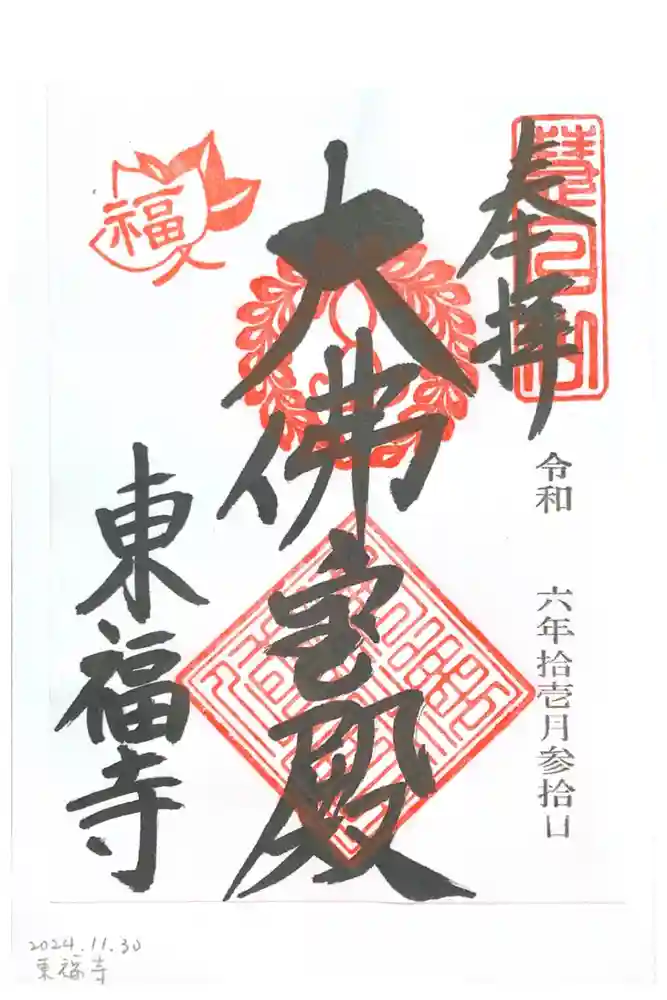 奉拝
令和 六年拾壱月参拾日
大佛宝殿
東福寺
福
2024.11.30
東福寺